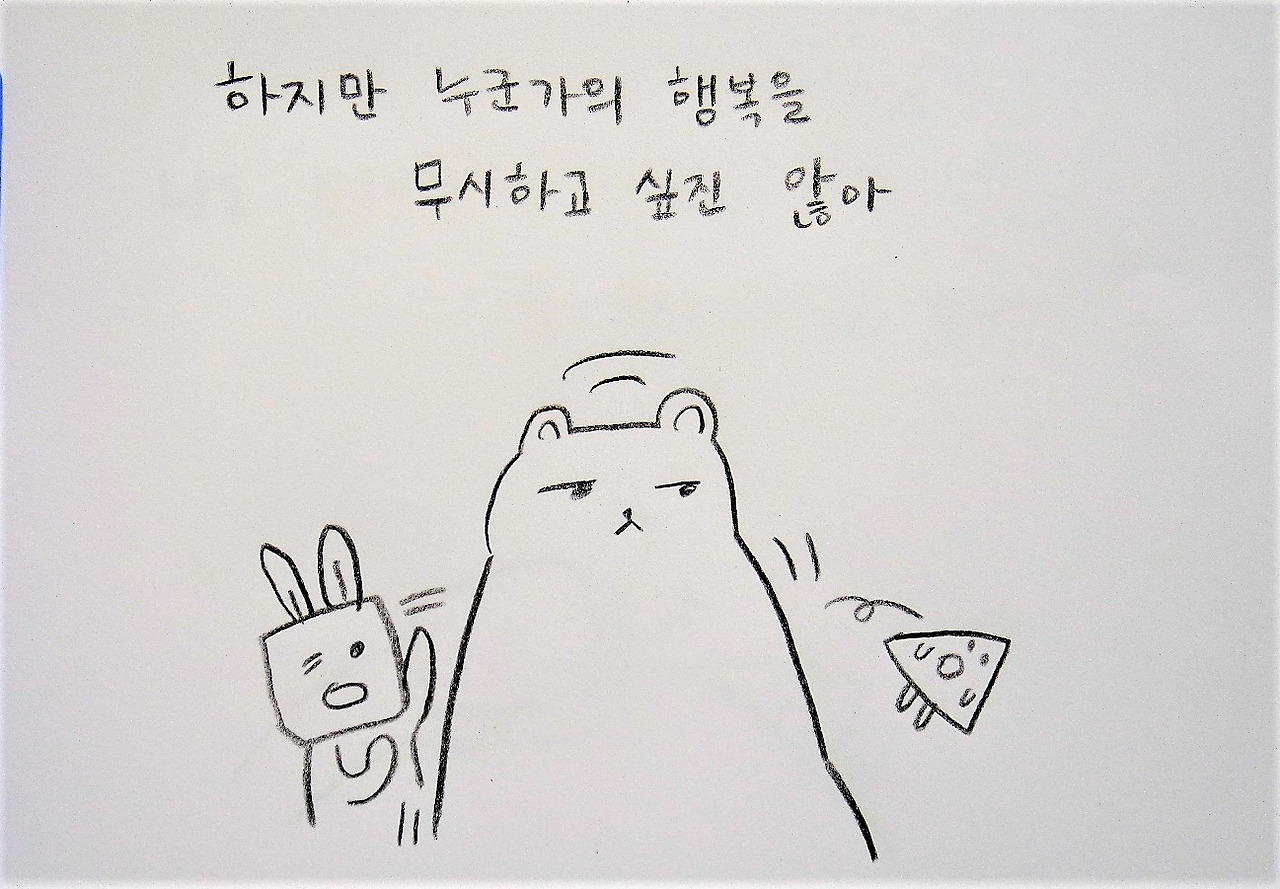 하지만 누군가의 행복을
무시하고 싶진 않아